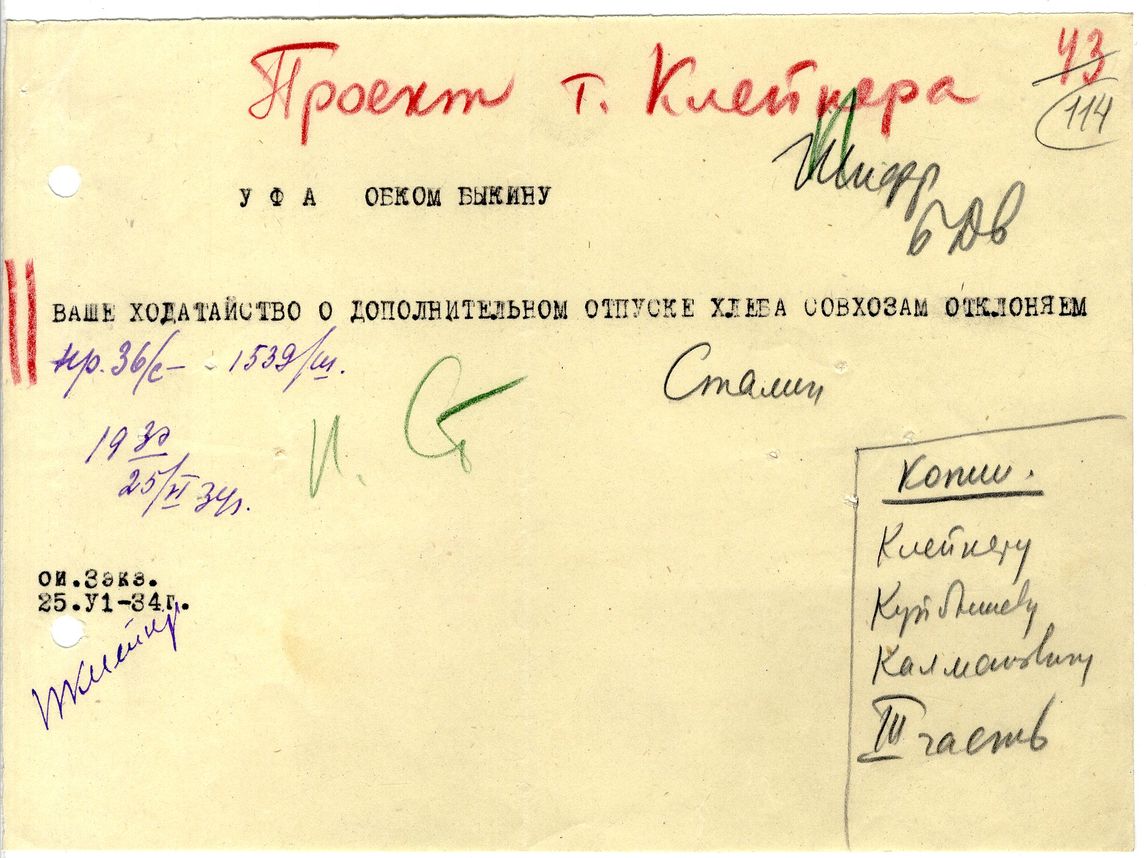 Проект т. Клейнера
43
114
Шифр
УФА ОБКОМ БЫКИНУ
ВАШЕ ХОДАТАЙСТВО О ДОПОЛНИТЕЛЬНОМ ОТПУСКЕ ХЛЕБА СОВХОЗАМ ОТКЛОНЯЕМ
пр. 36/с - 1539/ш.
Сталин
И. Ст
19 30
25/VI 34г.
Копии.
Клейнеру
Куйбышеву
Калмановичу
III часть
ои.3экз.
25.У1-34г.
ИКлейнер